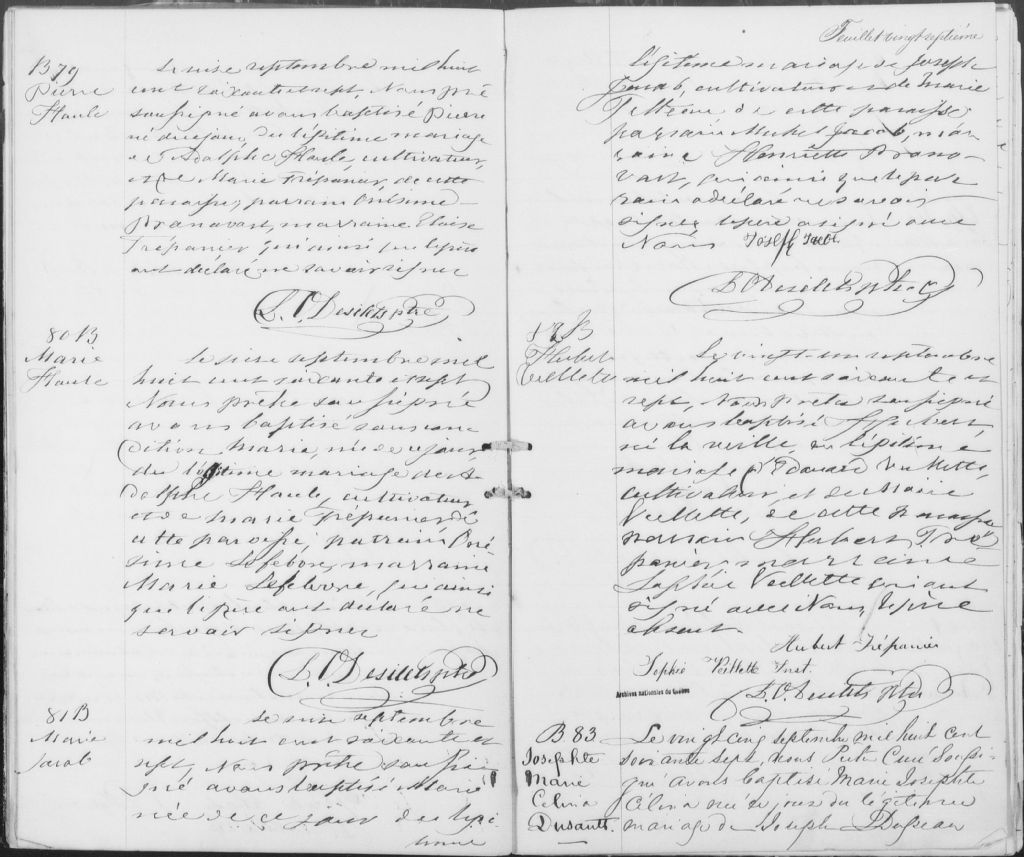 B 79
Pierre
Haule
Le seize septembre mil huit
cent soixante et sept, Nous prê
soussigné avons baptisé Pierre
né de ce jour, du légitime mariage
d'Adolphe Haule, cultivateur,
et de Marie Trépanier, de cette
paroisse, parrain Onésime
marraine Eloise
Trépanier, qui ainsi que le père
ont déclaré ne savoir signer
D. O. Desilets ptre
80 B.
Marie
Haule
Le seize septembre mil
huit cent soixante et sept
Nous prêtre soussigné
avons baptisé sous con
dition Marie, née de ce jour
du légitime mariage de A-
dolphe Haule, cultivateur
et de Marie Trépanier de
cette paroisse, parrain Oné-
sime Lefebvre, marraine
Marie Lefebvre, qui ainsi
que le père ont déclaré ne
savoir signer
D. O. Desilets ptre
81 B
Marie
Jacob
Le seize septembre
mil huit cent soixante et
sept, Nous prêtre soussi
gné avons baptisé Marie
née de ce jour du légi
time
Feuillet vingt septième
légitime mariage de Joseph
Jacob, cultivateur et de Marie
de cette paroisse
parrain Michel Jacob, mar
raine Henriette
qui ainsi que le par
rain a déclaré ne savoir
signer le père a signé avec
Nous Joseph Jacob
D O Desilets ptre
B
Hubert
Veillette
Le vingt-un septembre
mil huit cent soixante et
sept, Nous Prêtre soussigné
avons baptisé Hubert,
né la veille, du légitime
mariage d'Edouard Veillette,
cultivateur, et de Marie
Veillette, de cette paroisse
parrain Hubert Tré
panier, marraine
Sophie Veillette qui ont
signé avec Nous, le père
absent.
Hubert Trépanier
Sophie Veillette
Archives nationales du Québec
D. O. Desilets ptre
B 83
Josephte
Marie
Célina
Dusault.
Le vingt cinq septembre mil huit cent
soixante sept, nous Prêtre Curé soussi-
gné avons baptisé Marie Josephte
Célina née ce jour du légitime
mariage de Joseph